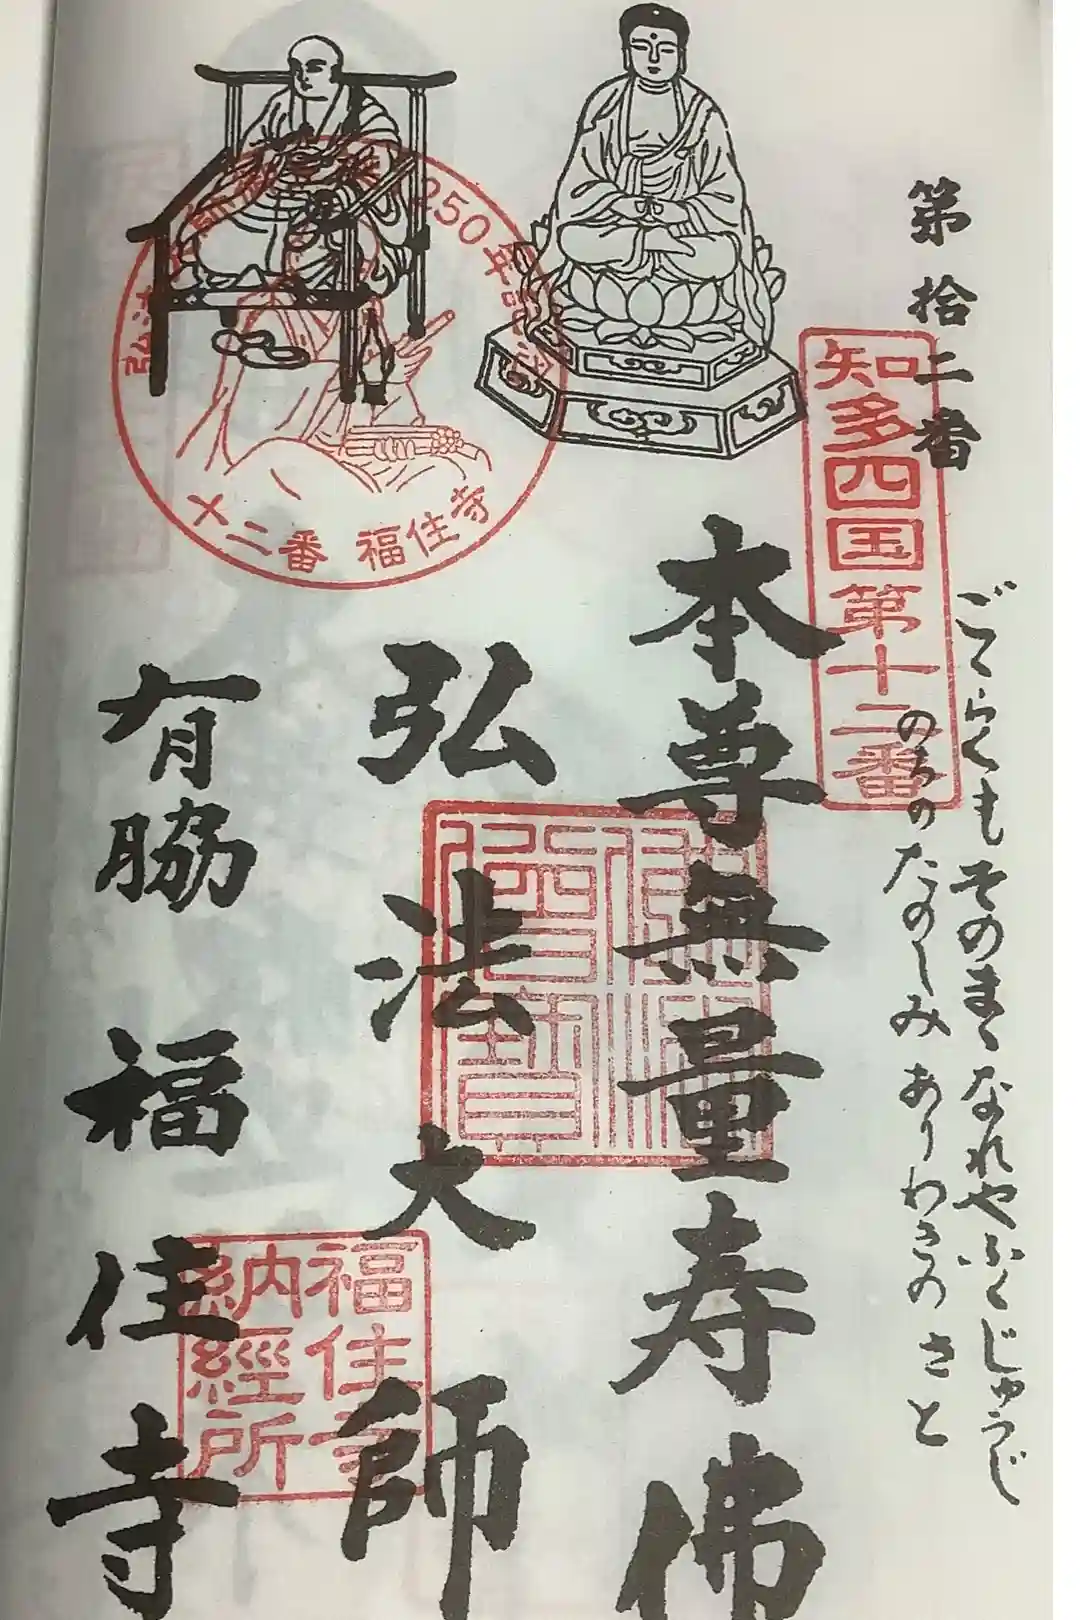 第拾二番
ごくらくもそのまゝなれやふくじゅうじ
のちのたのしみありわきのさと
本尊無量寿佛
弘法大師
有脇 福住寺
知多四国第十二番
250年記念
十二番 福住寺
佛法僧寶
福住寺
納經所